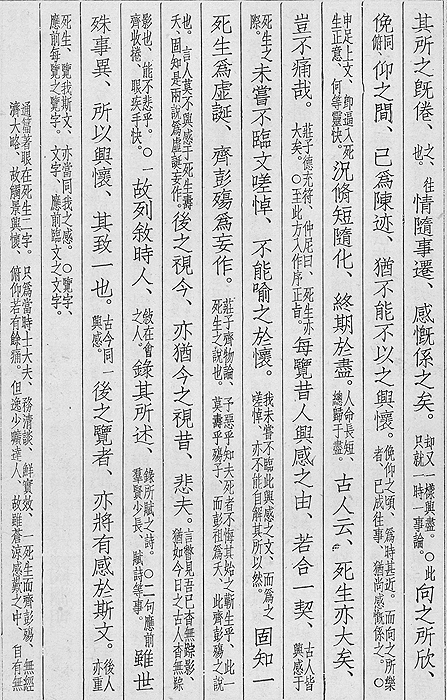 其所之旣倦、之、往也。情隨事遷、感慨係之矣。却又一樣興盡。○此只就一時一事論。向之所欣、
俛俯同仰之間、已爲陳迹、猶不能不以之興懷。俛仰之頃、爲時甚近。而向之所樂者、已成往事、猶尚感慨係之。○
申足上文、卽逼入死生正意、何等靈快。況脩短隨化、終期於盡。人命長短、總歸于盡。古人云、死生亦大矣、
豈不痛哉。莊子德充符、仲尼曰、死生亦大矣。○至此方入作序正旨。每覽昔人興感之由、若合一契、古人皆興感于
死生之際。未嘗不臨文嗟悼、不能喻之於懷。我未嘗不臨此興感之文、而爲之嗟悼、亦不能自解其所以然。固知一
死生爲虛誕、齊彭殤爲妄作。莊子齊物論、予惡乎知夫死者不悔其始之蘄生乎、此一死生之說也。莫壽乎殤子、而彭祖爲夭、此齊彭殤之說
也。言人莫不興感于死生壽夭、固知是兩說爲虛誕妄作。後之視今、亦猶今之視昔、悲夫。言瞥見吾已杳無踪影、猶如今日之古人杳無踪
影也、能不悲乎。○一齊收捲、眼疾手快。故列敘時人、敘在會之人。錄其所述、錄所賦之詩。○二句應前羣賢少長、賦詩等事。雖世
殊事異、所以興懷、其致一也。古今同一興感。後之覽者、亦將有感於斯文。後人亦重
死生、覽我斯文、亦當同我之感。○覽字、應前每覽之覽字。文字、應前臨文之文字。
通篇著眼在死生二字。只爲當時士大夫、務淸談、鮮實效、一死生而齊彭殤、無經濟大略、故觸景興懷、俯仰若有餘痛。但逸少曠達人、故雖蒼涼感歎之中、自有無